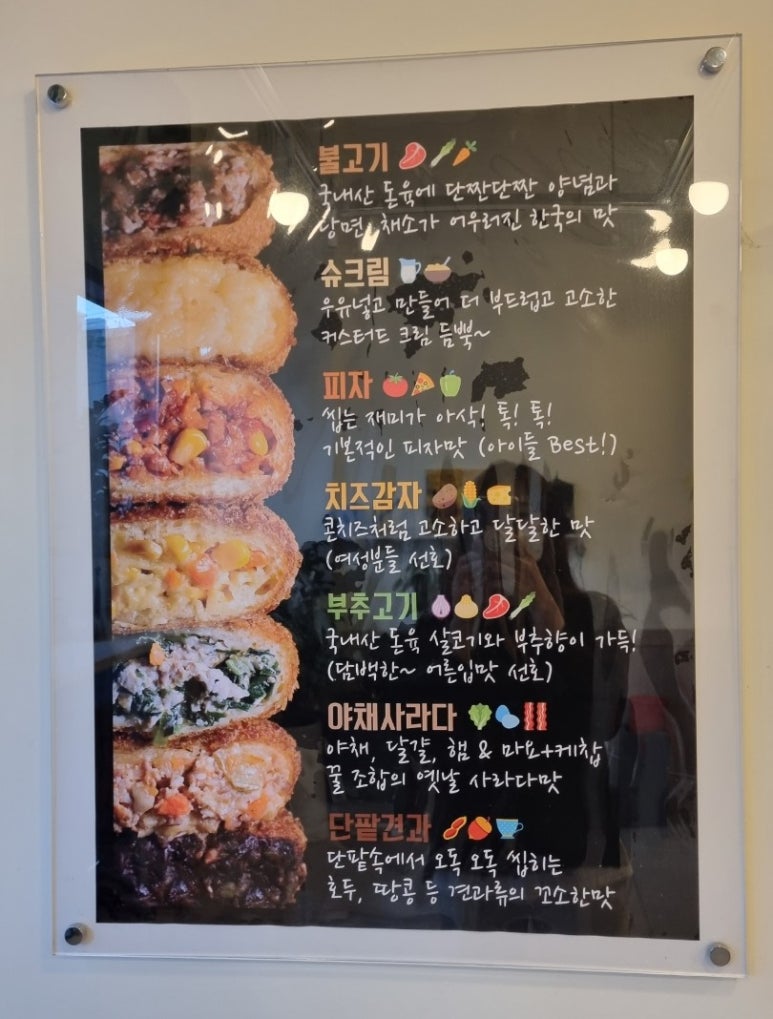 불고기
국내산 돈육에 단짠단짠 양념과
당면, 채소가 어우러진 한국의 맛
슈크림
우유넣고 만들어 더 부드럽고 고소한
커스터드 크림 듬뿍~
피자
씹는 재미가 아삭! 톡! 톡!
기본적인 피자맛 (아이들 Best!)
치즈감자
콘치즈처럼 고소하고 달달한 맛
(여성분들 선호)
부추고기
국내산 돈육 살코기와 부추향이 가득!
(담백한~ 어른입맛 선호)
야채사라다
야채, 달걀, 햄 & 마요+케찹
꿀 조합의 옛날 사라다맛
단팥견과
단팥속에서 오독 오독 씹히는
호두, 땅콩 등 견과류의 꼬소한맛